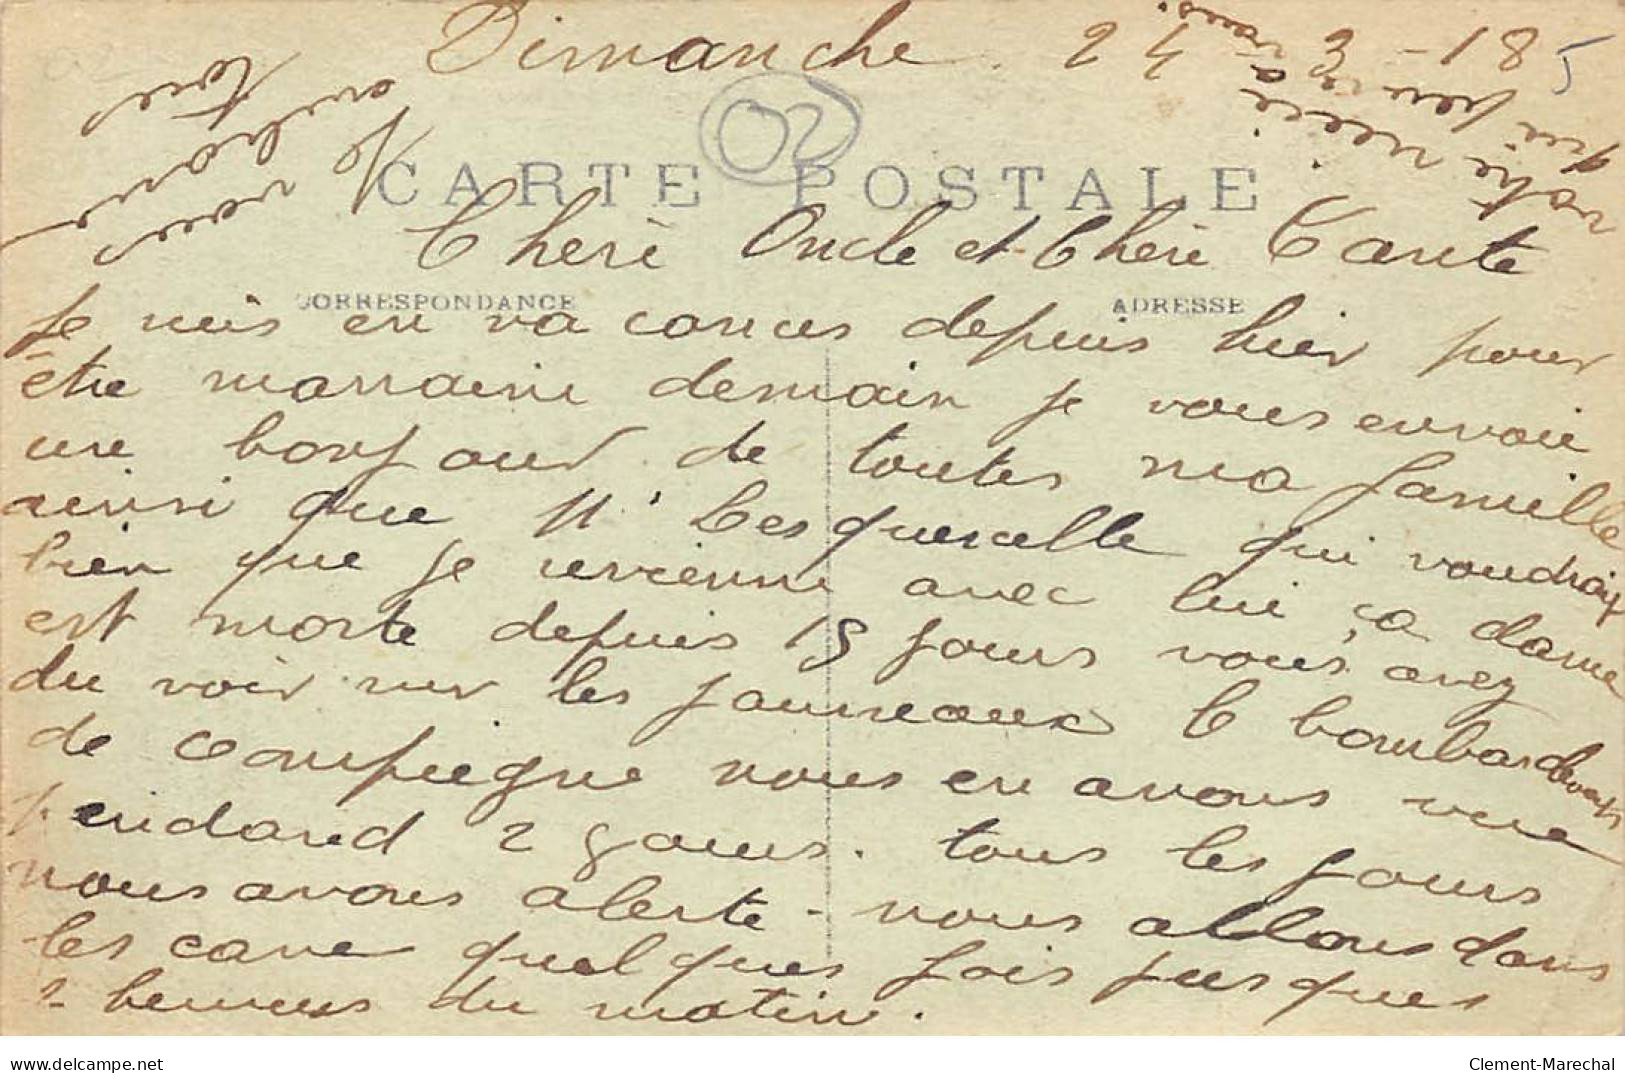 Dimanche 24
CARTE POSTALE
02
Cheri Oncle et Cheri Tante
CORRESPONDANCE
ADRESSE
Je suis en va cances depuis hier pour
être marraine demain je vous envoie
une bonjour de toutes ma famille
ainsi que Mr qui voudrais
bien que je revienne avec lui, ça dame
est morte depuis 15 jours vous avez
du voir sur les journeaux le bombardement
de compiegne nous en avons vue
pendand 2 jours. tous les jours
nous avons alerte - nous allons dans
les cave quelques fois jusques
heures du matin.
votre niece
qui
Clement-Marechal
delcampe.net